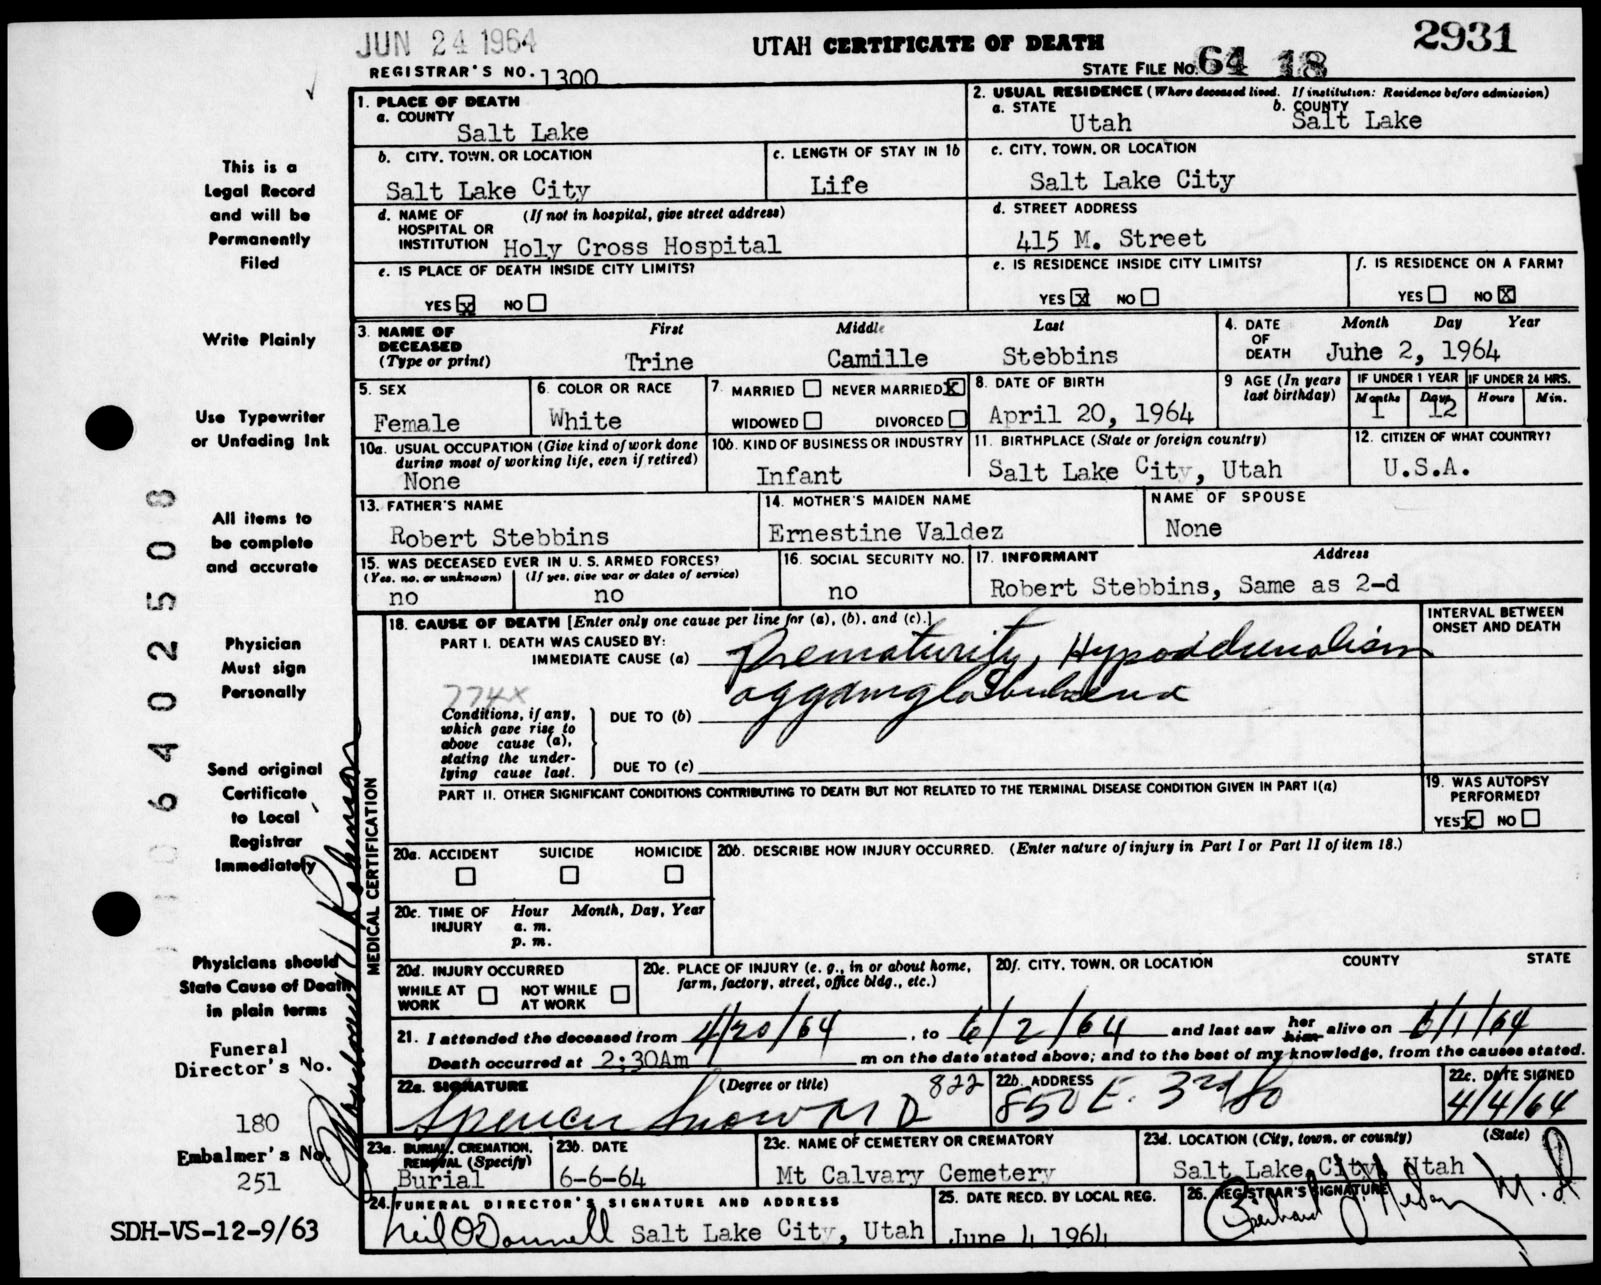 JUN 24 1964
UTAH CERTIFICATE OF DEATH
2931
REGISTRAR'S NO. 1300
STATE FILE NO. 64 18
1. PLACE OF DEATH
a. COUNTY
Salt Lake
2. USUAL RESIDENCE (Where deceased lived. If institution: Residence before admission)
a. STATE
Utah
b. COUNTY
Salt Lake
b. CITY, TOWN, OR LOCATION
Salt Lake City
c. LENGTH OF STAY IN 1b
Life
c. CITY, TOWN, OR LOCATION
Salt Lake City
d. NAME OF HOSPITAL OR INSTITUTION (If not in hospital, give street address)
Holy Cross Hospital
d. STREET ADDRESS
415 M. Street
e. IS PLACE OF DEATH INSIDE CITY LIMITS?
YES X NO
e. IS RESIDENCE INSIDE CITY LIMITS?
YES X NO
f. IS RESIDENCE ON A FARM?
YES NO X
3. NAME OF DECEASED (Type or print)
First Middle Last
Trine Camille Stebbins
4. DATE OF DEATH Month Day Year
Juhe 2, 1964
5. SEX
Female
6. COLOR OR RACE
White
7. MARRIED NEVER MARRIED X
WIDOWED DIVORCED
8. DATE OF BIRTH
April 20, 1964
9 AGE (In years last birthday)
IF UNDER 1 YEAR IF UNDER 24 HRS.
Months Days Hours Min.
1 12
10a. USUAL OCCUPATION (Give kind of work done during most of working life, even if retired)
None
10b. KIND OF BUSINESS OR INDUSTRY
Infant
11. BIRTHPLACE (State or foreign country)
Salt Lake City, Utah
12. CITIZEN OF WHAT COUNTRY?
U.S.A.
13. FATHER'S NAME
Robert Stebbins
14. MOTHER'S MAIDEN NAME
Ernestine Valdez
NAME OF SPOUSE
None
15. WAS DECEASED EVER IN U. S. ARMED FORCES?
(Yes, no, or unknown) (If yes, give war or dates of service)
no no
16. SOCIAL SECURITY NO.
no
17. INFORMANT Address
Robert Stebbins, Same as 2-d
MEDICAL CERTIFICATION
18. CAUSE OF DEATH [Enter only one cause per line for (a), (b), and (c).]
INTERVAL BETWEEN ONSET AND DEATH
PART I. DEATH WAS CAUSED BY:
IMMEDIATE CAUSE (a) Prematurity, Hypoadrenalism
774X
Conditions, if any, which gave rise to above cause (a), stating the underlying cause last.
DUE TO (b)
DUE TO (c)
PART II. OTHER SIGNIFICANT CONDITIONS CONTRIBUTING TO DEATH BUT NOT RELATED TO THE TERMINAL DISEASE CONDITION GIVEN IN PART I(a)
19. WAS AUTOPSY PERFORMED?
YES X NO
20a. ACCIDENT SUICIDE HOMICIDE
20b. DESCRIBE HOW INJURY OCCURRED. (Enter nature of injury in Part I or Part II of item 18.)
20c. TIME OF INJURY Hour Month, Day, Year
a. m.
p. m.
20d. INJURY OCCURRED
WHILE AT WORK NOT WHILE AT WORK
20e. PLACE OF INJURY (e. g., in or about home, farm, factory, street, office bldg., etc.)
20f. CITY, TOWN, OR LOCATION COUNTY STATE
21. I attended the deceased from 4/20/64, to 6/2/64 and last saw her him alive on 6/1/64
Death occurred at 2:30Am m on the date stated above; and to the best of my knowledge, from the causes stated.
22a. SIGNATURE (Degree or title) 822
Spencer Snow M D
22b. ADDRESS
850 E. 3rd So
22c. DATE SIGNED
4/4/64
23a. BURIAL, CREMATION, REMOVAL (Specify)
Burial
23b. DATE
6-6-64
23c. NAME OF CEMETERY OR CREMATORY
Mt Calvary Cemetery
23d. LOCATION (City, town, or county) (State)
Salt Lake City, Utah
24. FUNERAL DIRECTOR'S SIGNATURE AND ADDRESS
Neil O'Donnell Salt Lake City, Utah
25. DATE RECD. BY LOCAL REG.
June 4 1964
26. REGISTRAR'S SIGNATURE
M.D
This is a
Legal Record
and will be
Permanently
Filed
Write Plainly
Use Typewriter
or Unfading Ink
All items to
be complete
and accurate
Physician
Must sign
Personally
Send original
Certificate
to Local
Registrar
Immediately
Physicians should
State Cause of Death
in plain terms
Funeral
Director's No.
180
Embalmer's No.
251
SDH-VS-12-9/63
06402508